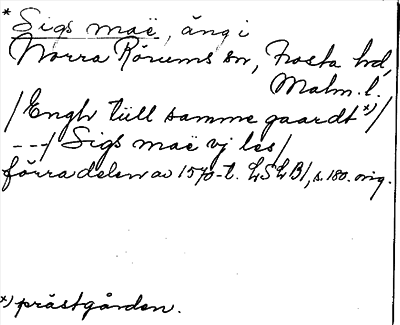 * Sigs maë, äng i
Norra Rörums sn, Frosta hd,
Malm. l.
/Engh tüll samme gaardt *)/
---/ Sigs maë vj les/
förra delen av 1570-t. LSLB1, s. 180. orig.
*) prästgården.